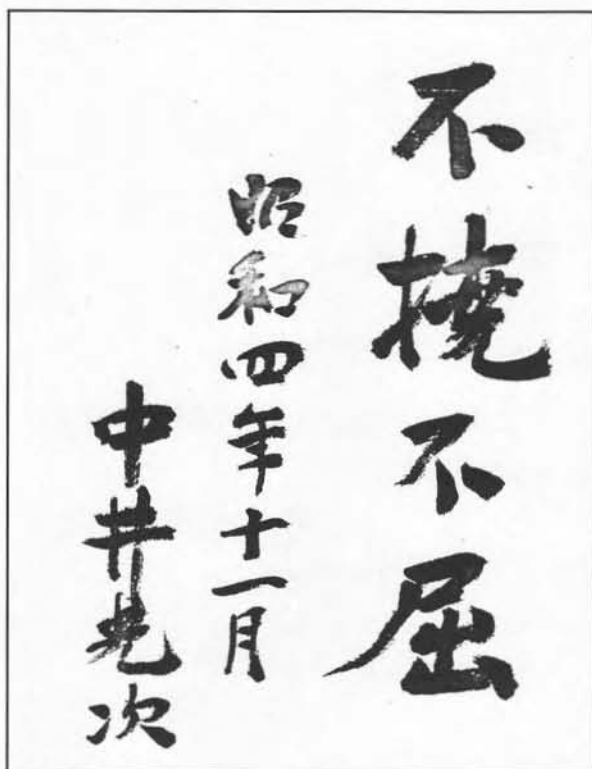 不撓不屈
昭和四年十一月
中井光次